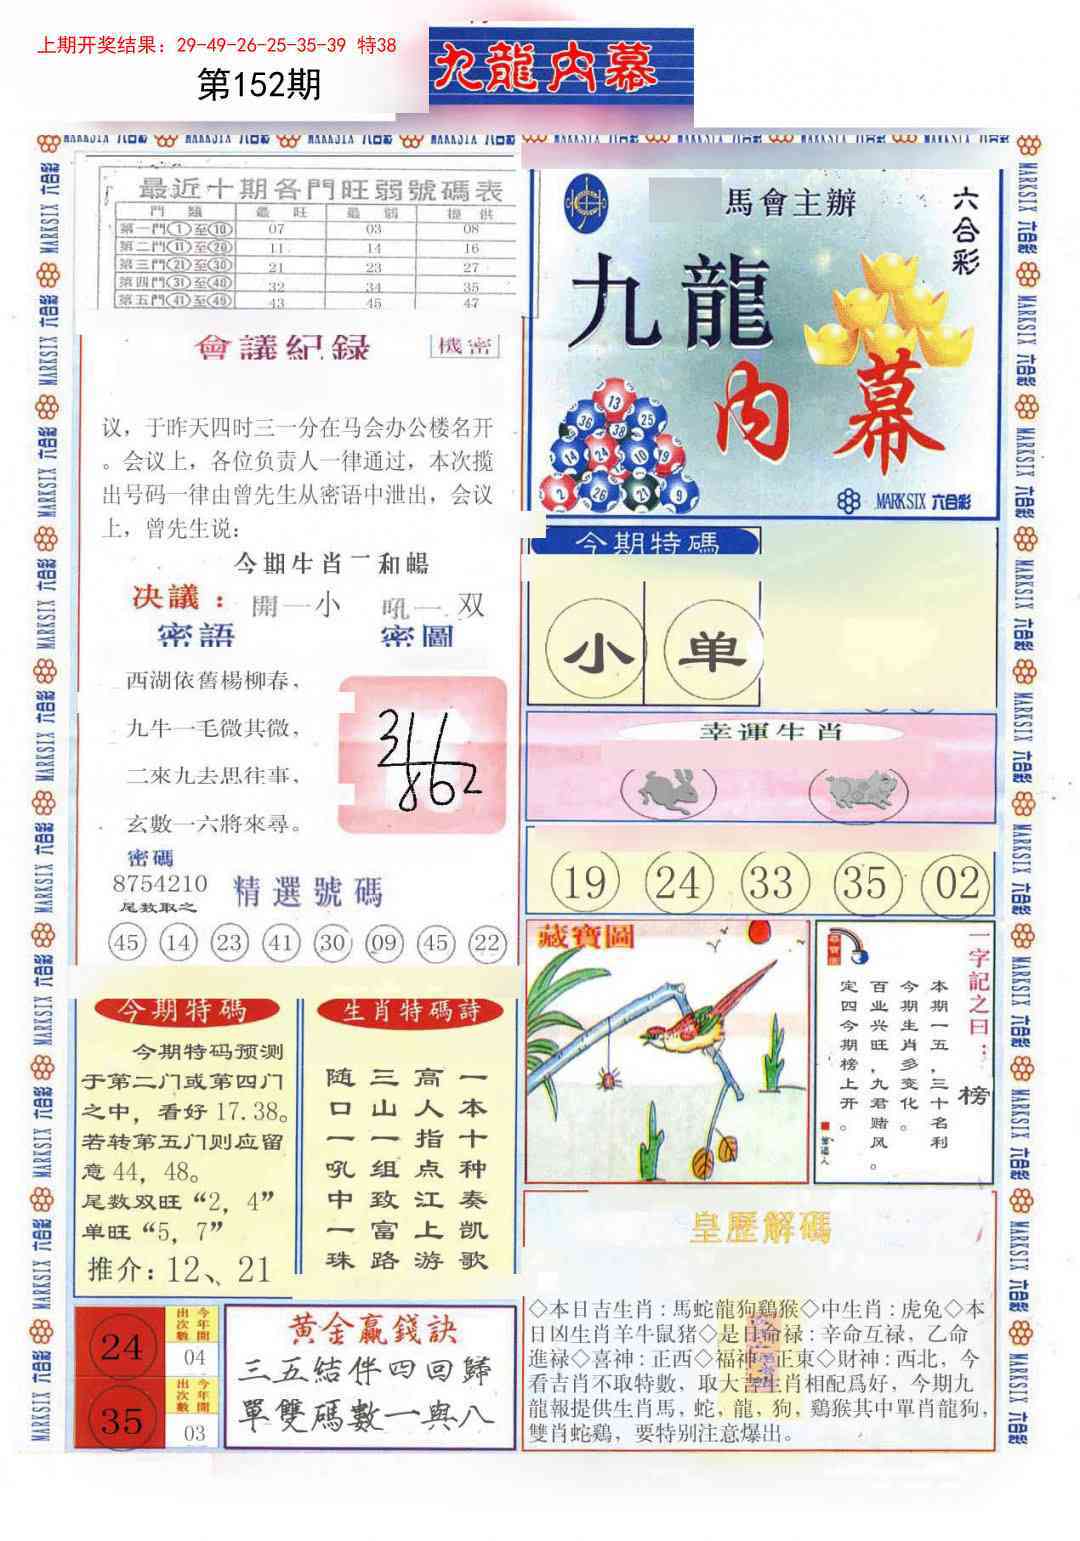 上期开奖结果：29-49-26-25-35-39 特38
第152期
九龍内幕
最近十期各門旺弱號碼表
門 類 最 旺 最 弱 提 供
第一門①至⑩ 07 03 08
第二門⑪至⑳ 11 14 16
第三門㉑至㉚ 21 23 27
第四門㉛至㊵ 32 34 35
第五門㊶至㊾ 43 45 47
會議紀録 機密
议，于昨天四时三一分在马会办公楼名开
。会议上，各位负责人一律通过，本次揽
出号码一律由曾先生从密语中泄出，会议
上，曾先生说：
今期生肖二和暢
决議： 開一小 吼一双
密語 密圖
西湖依舊楊柳春，
九牛一毛微其微，
二來九去思往事，
玄數一六將來尋。
密碼
8754210
尾数取之
精選號碼
45 14 23 41 30 09 45 22
馬會主辦
六合彩
九龍
内幕
13
36 38 25
14 24 10 19
2 26 21 9
MARKSIX 六合彩
今期特碼
小 单
幸運生肖
19 24 33 35 02
藏寶圖
一字記之曰：榜
本期一五，三十名利
今期生肖多变化。
百业兴旺，九君赌风。
定四今期榜上开。
今期特码
今期特码预测
于第二门或第四门
之中，看好 17.38。
若转第五门则应留
意 44，48。
尾数双旺“2，4”
单旺“5，7”
推介：12、21
生肖特碼詩
一本十种奏凯歌
高人指点江上游
三山一组致富路
随口一吼中一珠
24 今年開出次數 04
35 今年開出次數 03
黄金贏錢訣
三五結伴四回歸
單雙碼數一與八
皇歷解碼
◇本日吉生肖：馬蛇龍狗鷄猴◇中生肖：虎兔◇本
日凶生肖羊牛鼠猪◇是日命禄：辛命互禄，乙命
進禄◇喜神：正西◇福神：正東◇財神：西北，今
看吉肖不取特數，取大吉生肖相配爲好，今期九
龍報提供生肖馬，蛇，龍，狗，鷄猴其中單肖龍狗，
雙肖蛇鷄，要特别注意爆出。